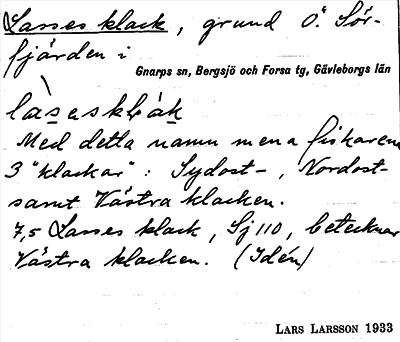 Lasses klack, grund Ö. Sör-
fjärden i
Gnarps sn, Bergsjö och Forsa tg, Gävleborgs län
làsesklák
Med detta namn mena fiskarena
3 "klackar": Sydost-, Nordost-
samt Västra klacken.
7,5 Lasses klack, Sj 110, betecknar
Västra klacken. (Idén)
LARS LARSSON 1933